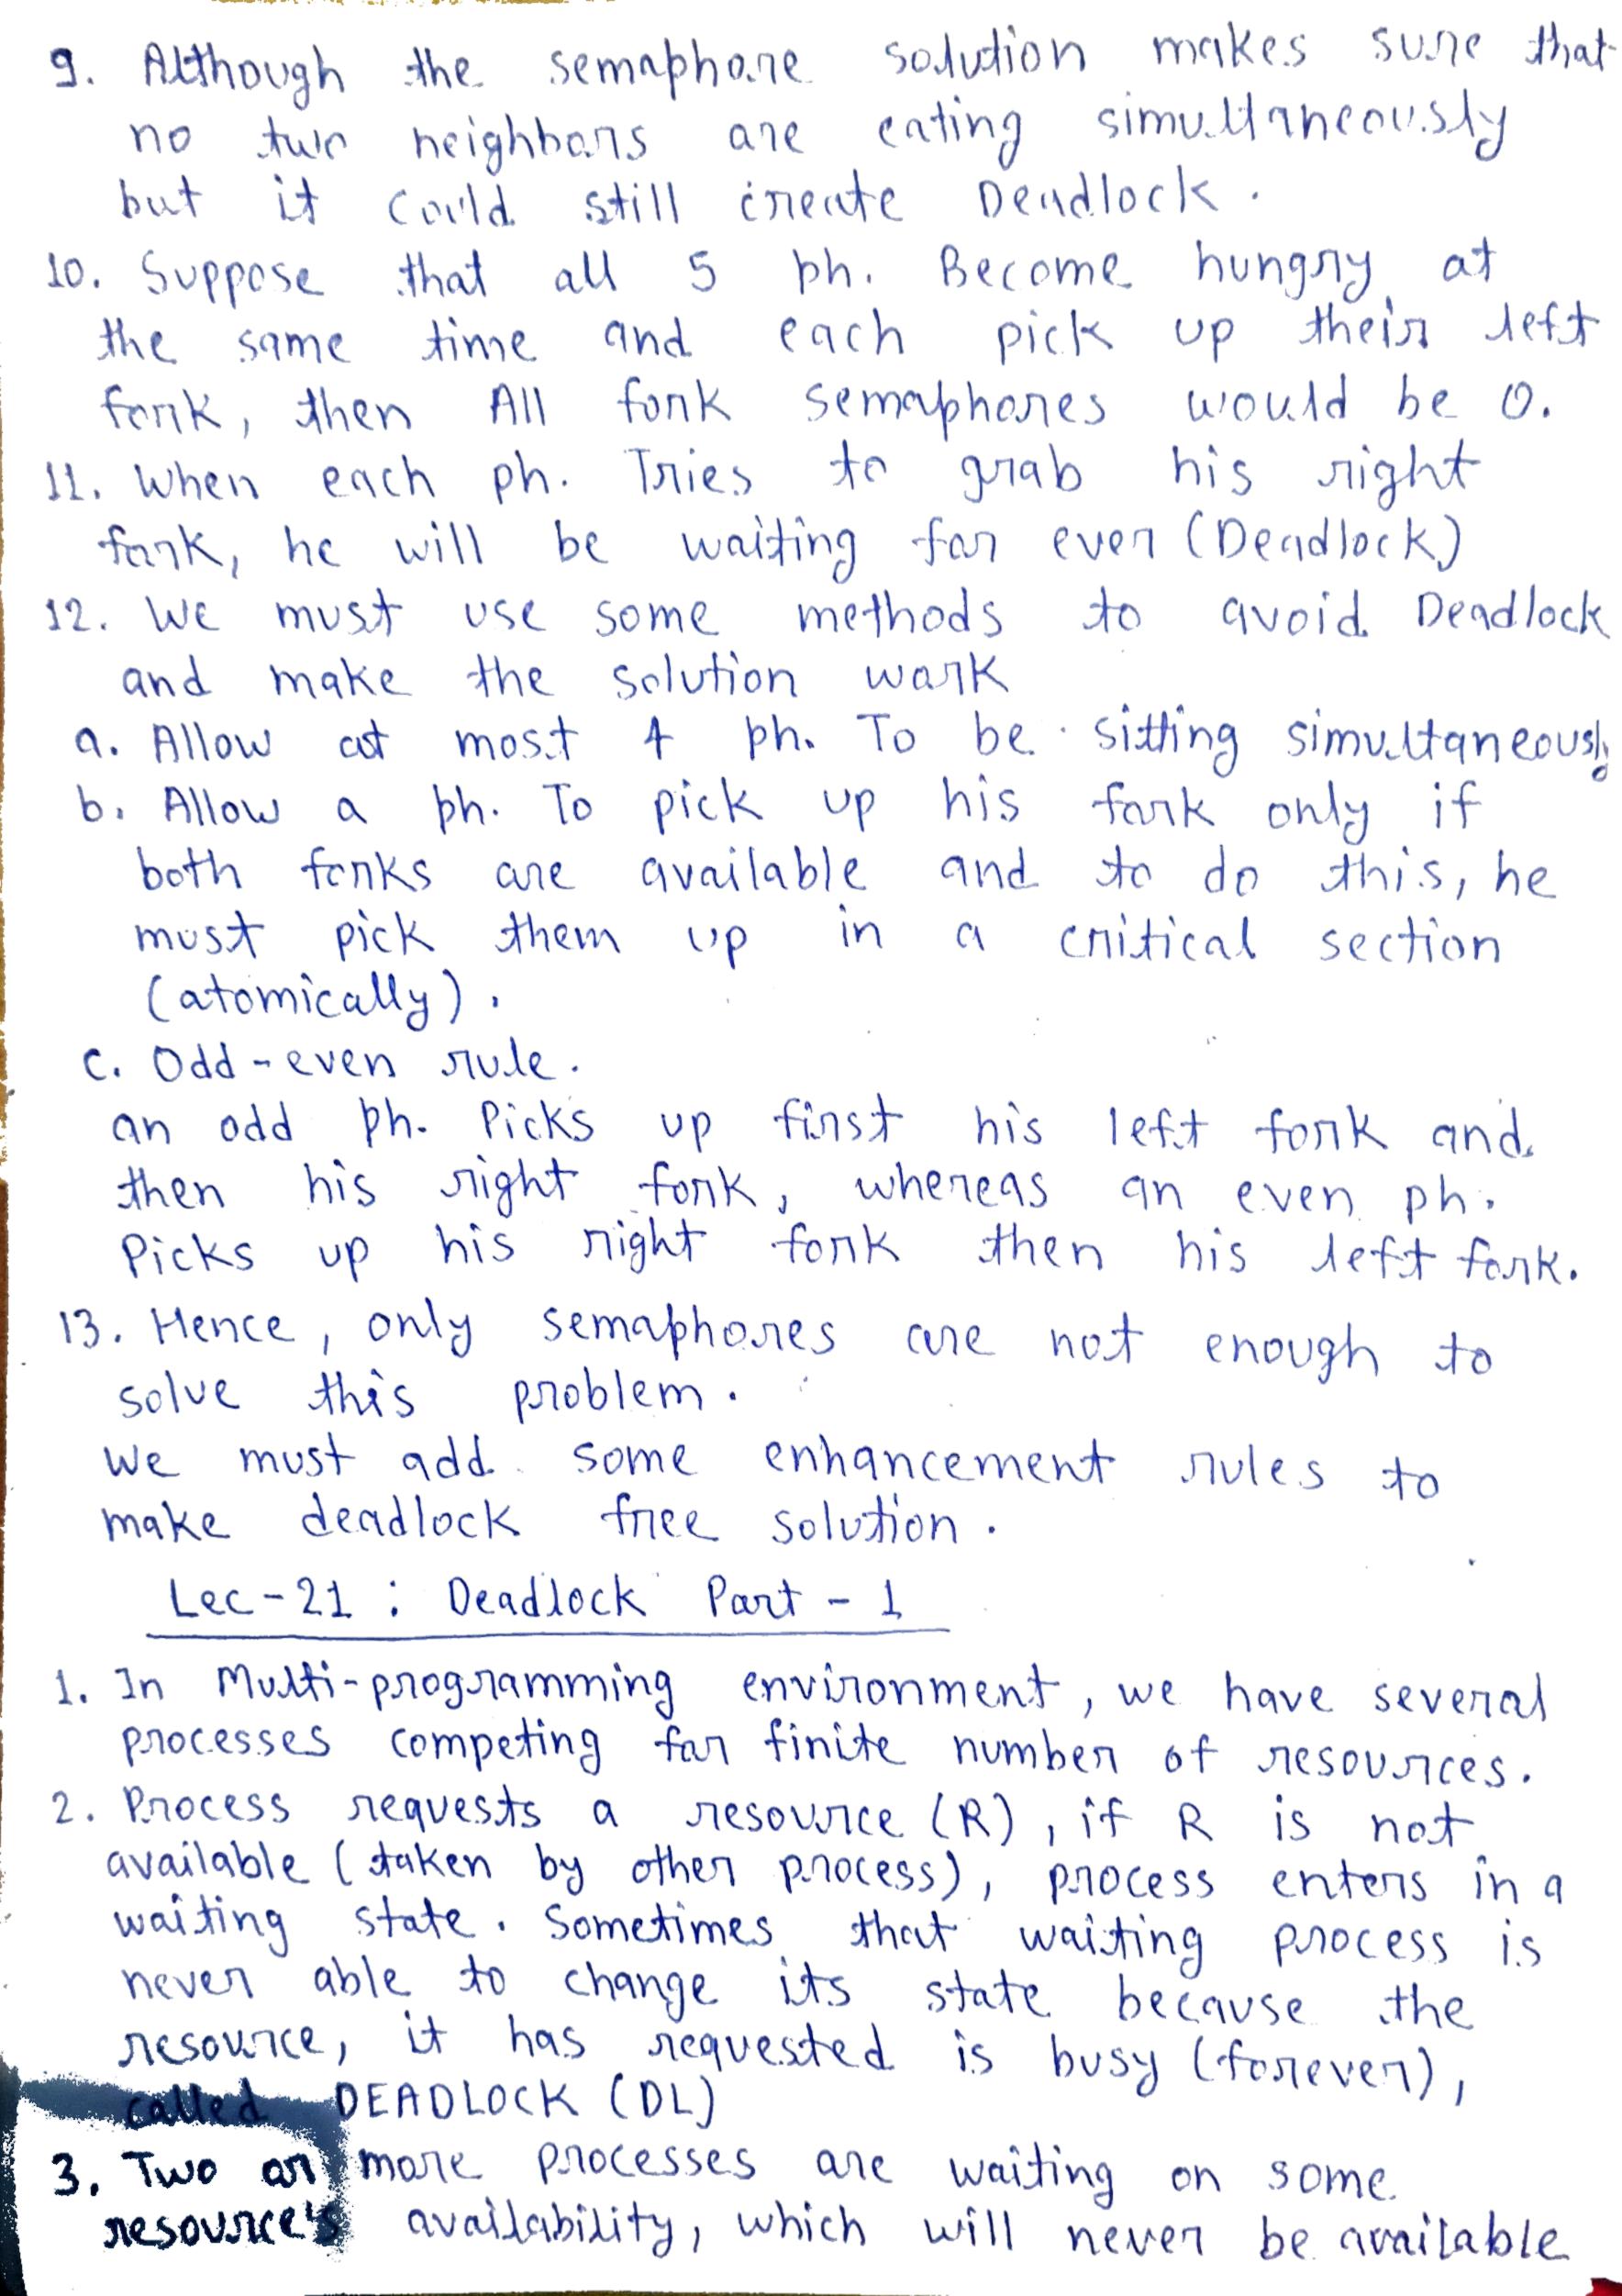 9. Although the semaphore solution makes sure that
no two neighbors are eating simultaneously
but it could still create Deadlock.
10. Suppose that all 5 ph. Become hungry at
the same time and each pick up their left
fork, then All fork semaphores would be 0.
11. When each ph. Tries to grab his right
fork, he will be waiting for ever (Deadlock)
12. We must use some methods to avoid Deadlock
and make the solution work
a. Allow at most 4 ph. To be sitting simultaneously
b. Allow a ph. To pick up his fork only if
both forks are available and to do this, he
must pick them up in a critical section
(atomically).
c. Odd-even rule.
an odd ph. Picks up first his left fork and
then his right fork, whereas an even ph.
Picks up his right fork then his left fork.
13. Hence, only semaphores are not enough to
solve this problem.
We must add some enhancement rules to
make deadlock free solution.
Lec-21 : Deadlock Part - 1
1. In Multi-programming environment, we have several
processes competing for finite number of resources.
2. Process requests a resource (R), if R is not
available (taken by other process), process enters in a
waiting state. Sometimes that waiting process is
never able to change its state because the
resource, it has requested is busy (forever),
called DEADLOCK (DL)
3. Two or more processes are waiting on some
resource's availability, which will never be available